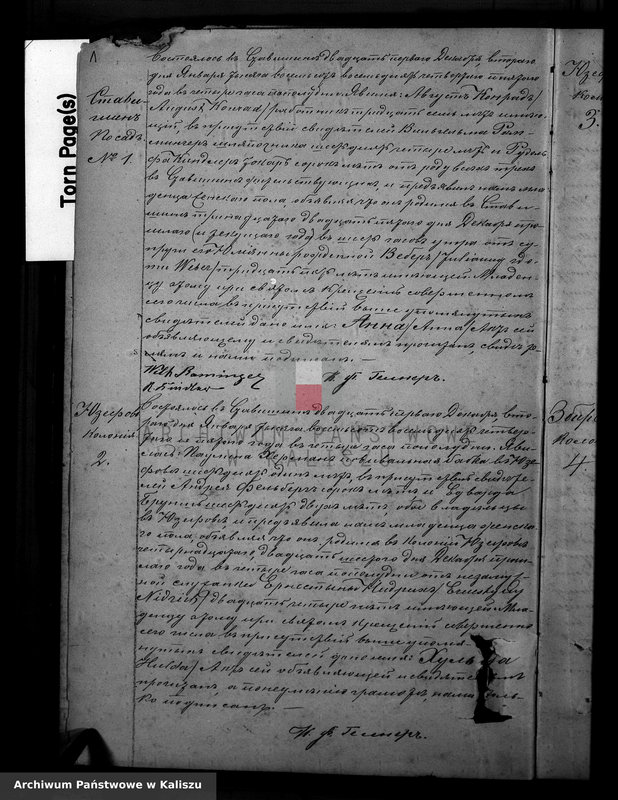 Torn Page(s)
Стави-
шинъ
Посадъ
№ 1.
Состоялось въ Ставишинѣ двадцать перваго Декабря, втораго
дня Января тысяча восемьсотъ восемьдесятъ четвертаго и пятаго
года въ четыре часа пополудни. Явился: Августъ Конрадъ/
August Konrad/ работникъ тридцать семь лѣтъ имѣю-
щій, въ присутствіи свидѣтелей Вильгельма
шестьдесятъ четыре лѣтъ и Рудоль-
фа Киндлеръ сорокъ лѣтъ отъ роду всѣхъ трехъ
въ Ставишинѣ жительствующихъ, и предъявилъ намъ мла-
денца женскаго пола, объявляя что онъ родился въ Стави-
шинѣ тринадцатаго двадцать пятаго дня Декабря про-
шлаго (и текущаго года) въ шесть часовъ утра отъ су-
пруги его Юліянны рожденной Веберъ/ Julianny
Weber/ тридцать лѣтъ имѣющей. Младен-
цу этому при святомъ крещеніи совершенномъ
сего числа въ присутствіи выше упомянутыхъ
свидѣтелей дано имя: Анна/ Anna/ Актъ сей
объявляющему и свидѣтелямъ прочитанъ,
и нами подписанъ. —
R Kindler
Юзефовъ
колонія
2.
Состоялось въ Ставишинѣ двадцать перваго Декабря вто-
раго дня Января тысяча восемьсотъ восемьдесятъ четвер-
таго и пятаго года въ четыре часа пополудни. Яви-
лась: Паулина повивальная бабка въ Юзе-
фовѣ шестьдесятъ одинъ лѣтъ, въ присутствіи свидѣте-
лей Андрея Фельбергъ сорокъ лѣтъ и Едуарда
шестьдесятъ двухъ лѣтъ, оба владѣльцы
въ Юзефовѣ и предъявила намъ младенца женска-
го пола, объявляя что онъ родился въ Колоніи Юзефовъ
четырнадцатаго, двадцать шестаго дня Декабря прош-
лаго года въ четыре часа пополудни отъ незамуж-
ной служанки Ернестины Нидрихъ/
Nidrich/ двадцать четыре лѣтъ имѣющей. Мла-
денцу этому при святомъ крещеніи совершенно
сего числа въ присутствіи выше упомя-
нутыхъ свидѣтелей дано имя: Хульда
Hulda/ Актъ сей объявляющей и свидѣтелямъ
прочитанъ, а по неумѣнію грамотѣ, нами толь-
ко подписанъ. —
Юзеф
коло
3.
Збир
коло
4.
ARCHIWUM PAŃSTWOWE
W KALISZU
Archiwum Państwowe w Kaliszu